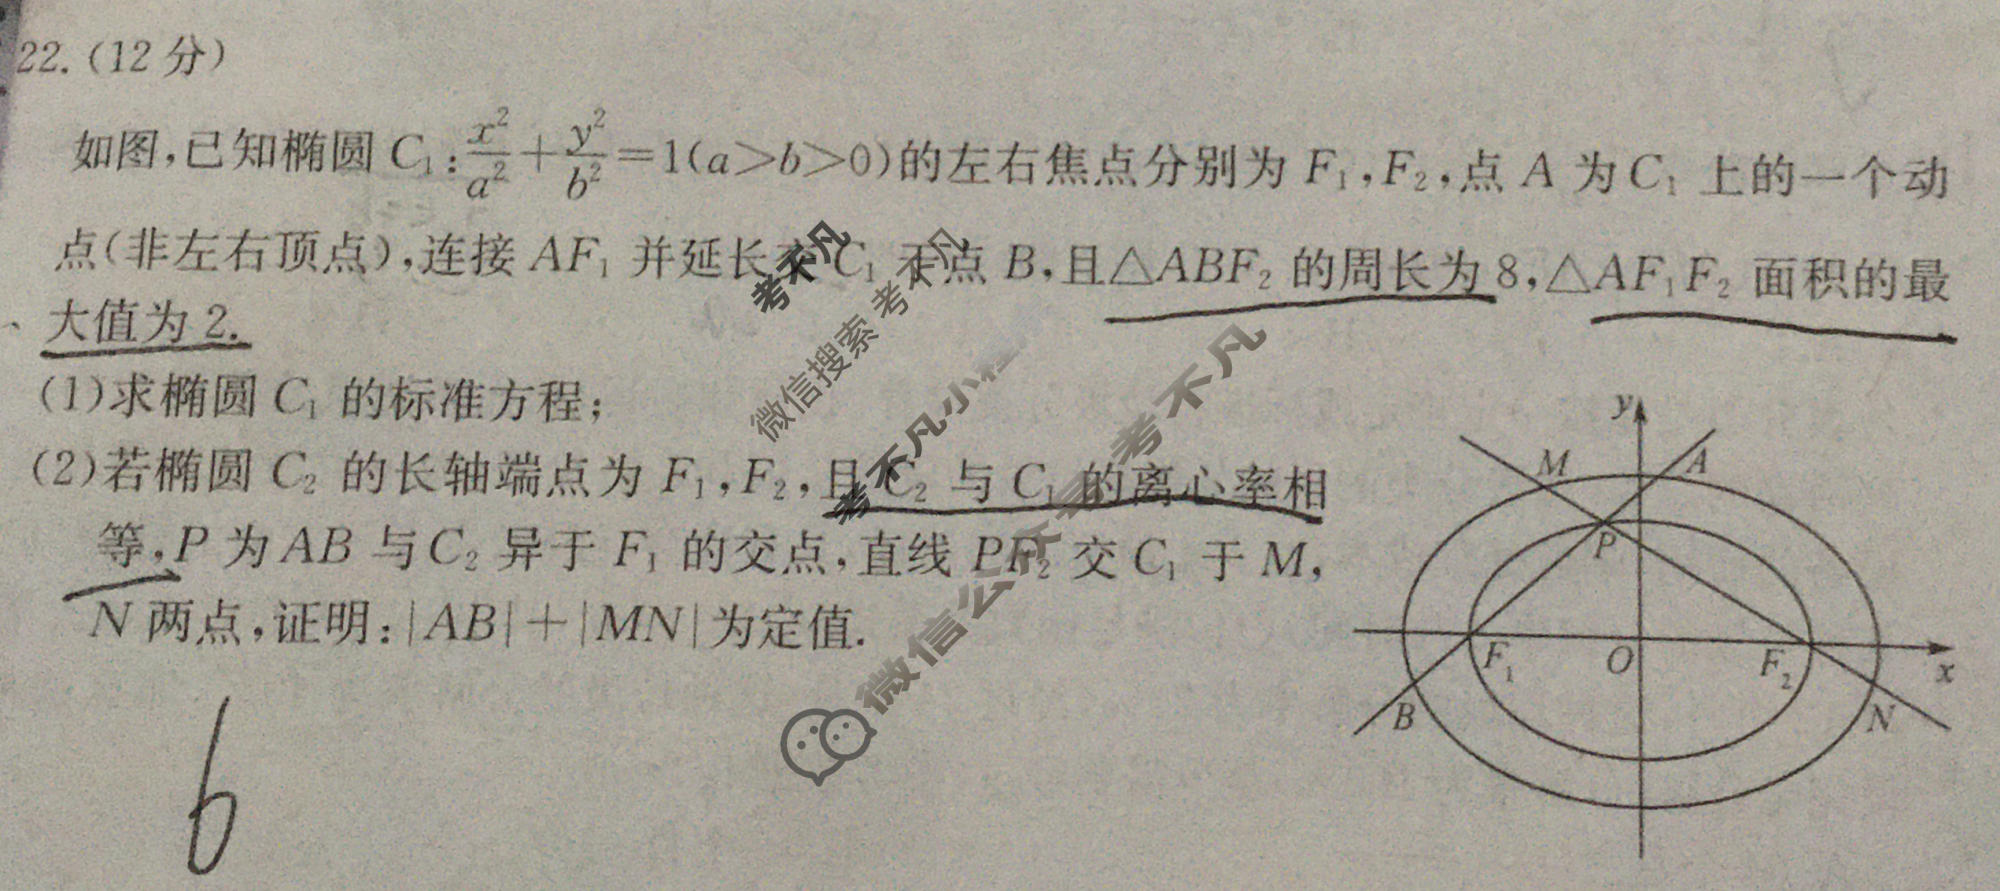 22.(12分)
如图,已知椭圆 C₁:x²/a²+y²/b²=1(a>b>0)的左右焦点分别为 F₁,F₂,点 A 为 C₁ 上的一个动
点(非左右顶点),连接 AF₁ 并延长交 C₁ 于点 B,且△ABF₂ 的周长为 8,△AF₁F₂ 面积的最
大值为 2.
(1)求椭圆 C₁ 的标准方程;
(2)若椭圆 C₂ 的长轴端点为 F₁,F₂,且 C₂ 与 C₁ 的离心率相
等,P 为 AB 与 C₂ 异于 F₁ 的交点,直线 PF₂ 交 C₁ 于 M,
N 两点,证明:|AB|+|MN|为定值.
y
M
A
P
F₁
O
F₂
x
B
N
6
考不凡
微信搜索 考不凡
考不凡小程
微信公众号 考不凡